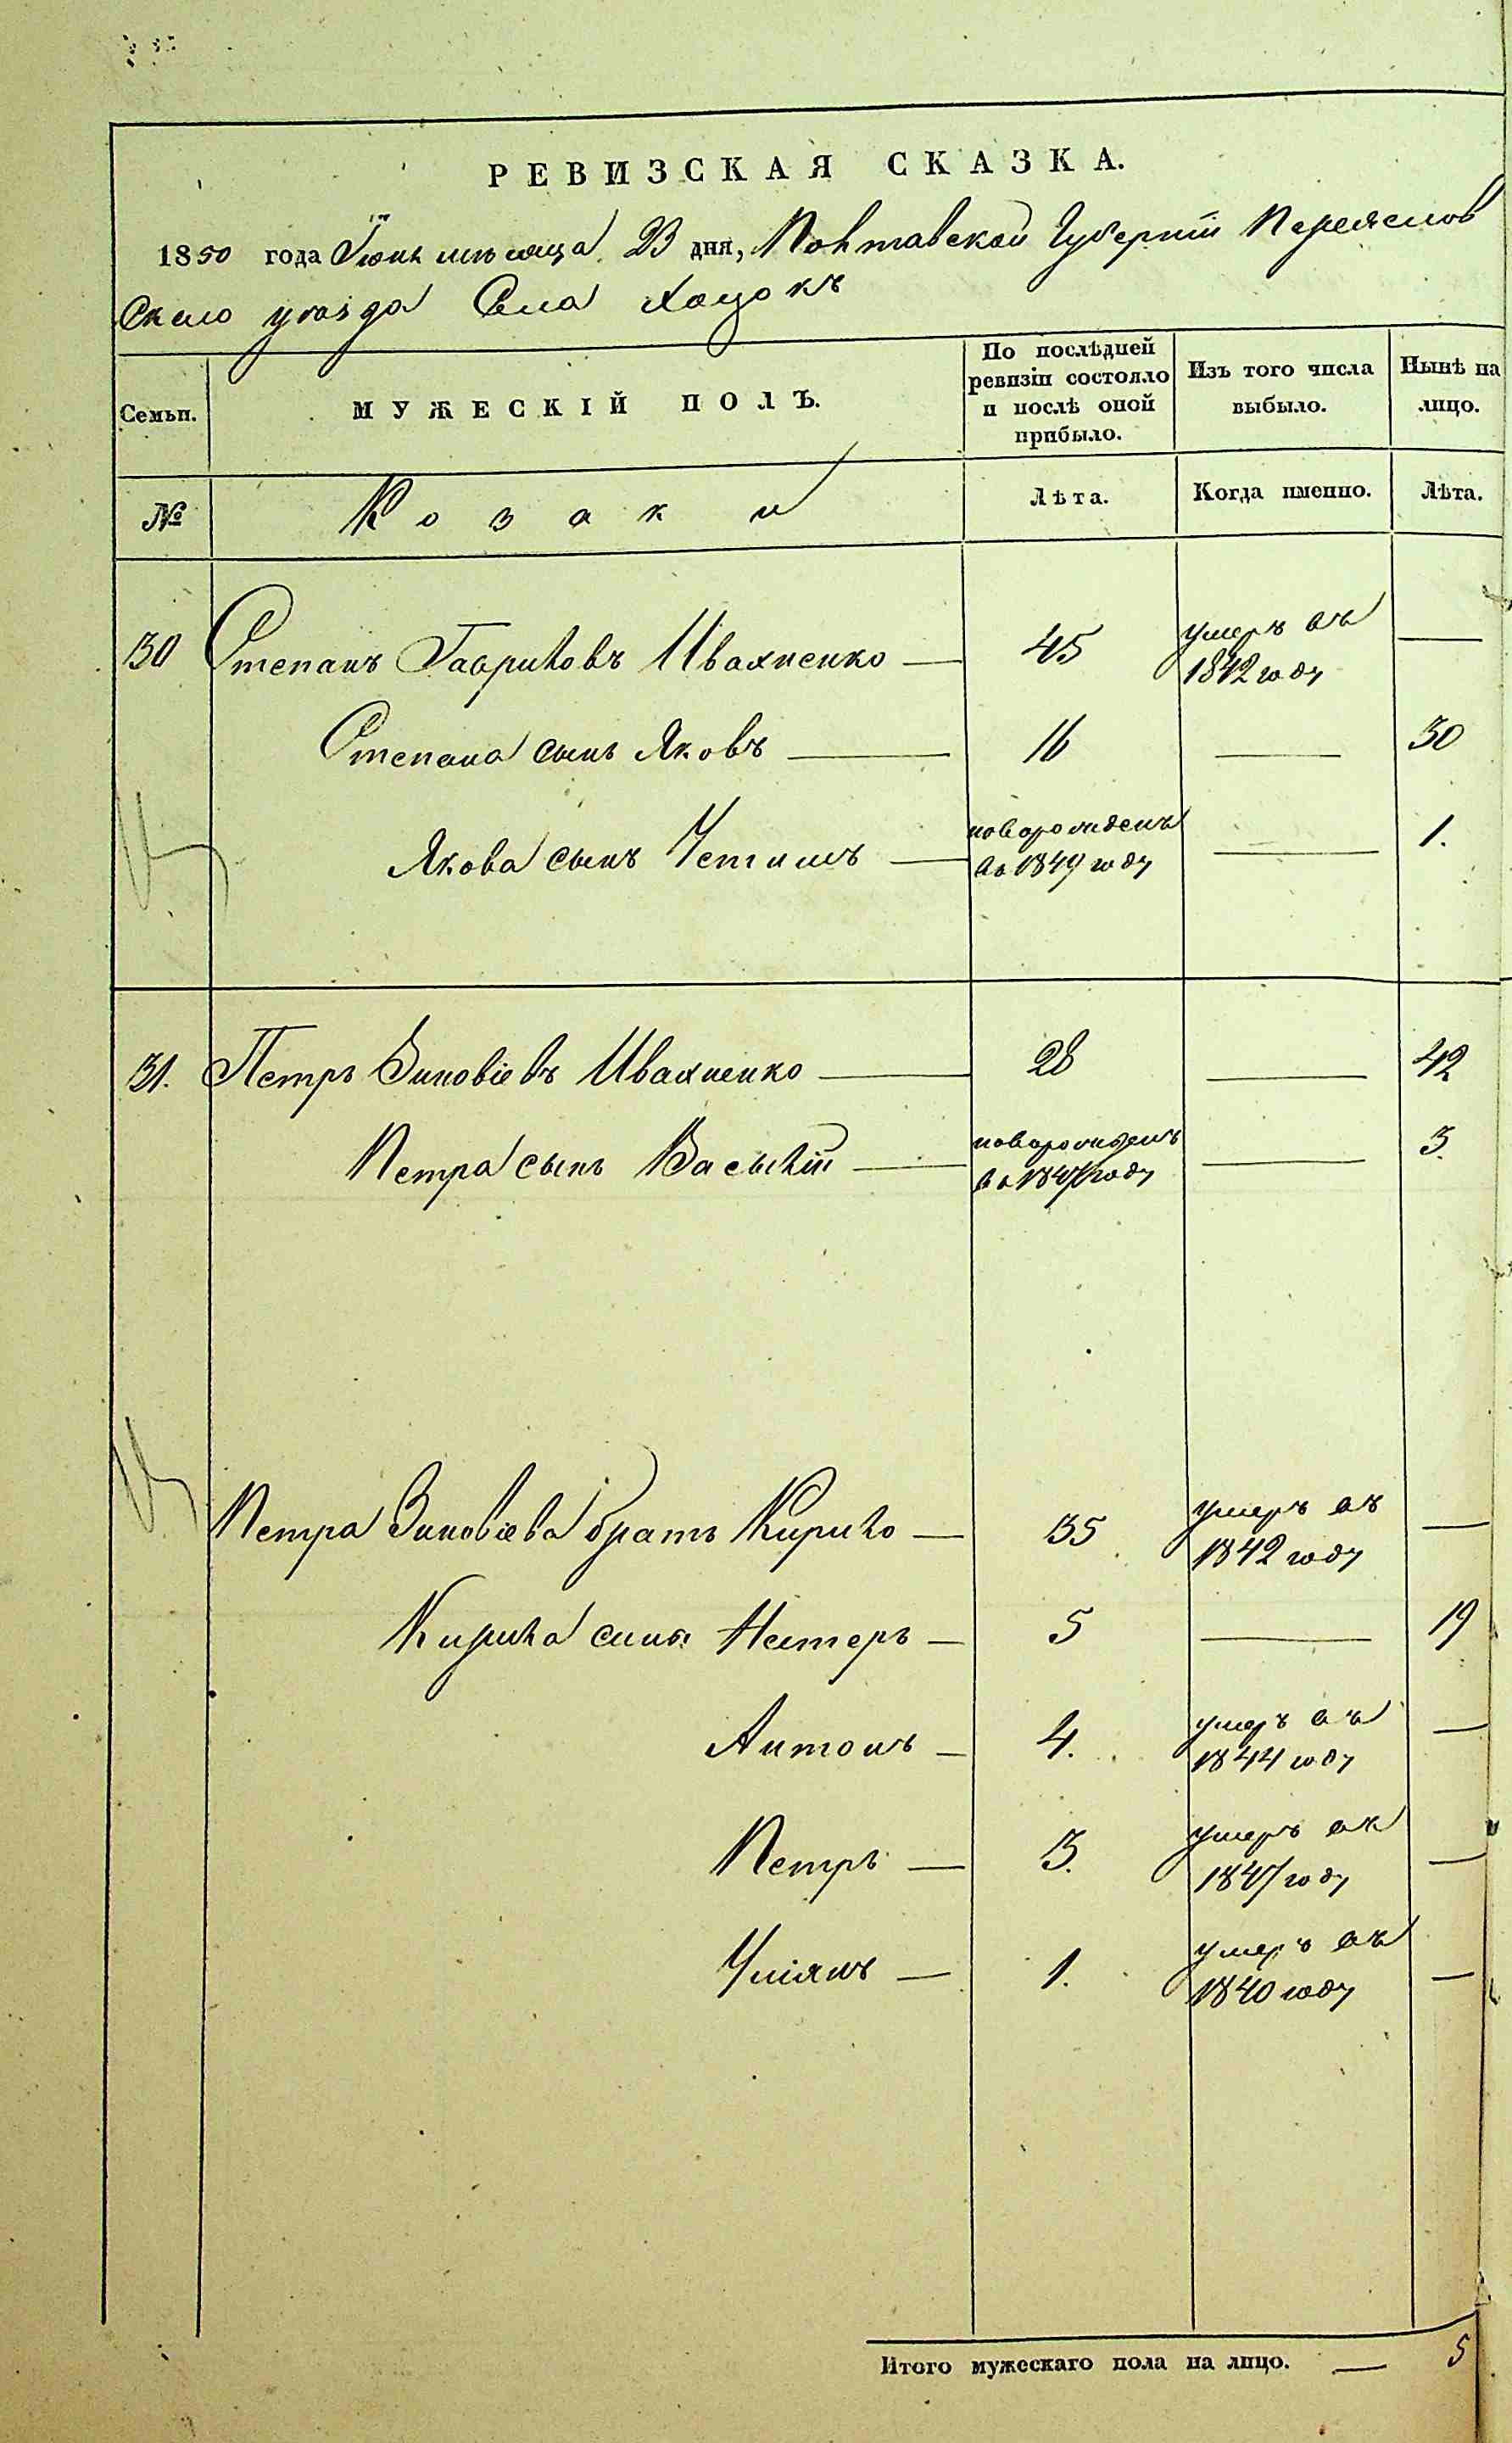 РЕВИЗСКАЯ СКАЗКА.
1850 года Іюня мѣсяца 23 дня, Полтавской Губерніи Переяслов
скаго уѣзда Села Хоцокъ
Семьи. МУЖЕСКІЙ ПОЛЪ. По послѣдней ревизіи состояло и послѣ оной прибыло. Изъ того числа выбыло. Нынѣ на лицо.
№ Козаки Лѣта. Когда именно. Лѣта.
30 Степанъ Гавриловъ Ивахненко — 45 умеръ въ 1842 году —
Степана сынъ Яковъ — 16 — 30
Якова сынъ Устимъ — новорожденъ въ 1849 году — 1.
31. Петръ Зиновіевъ Ивахненко — 28 — 42
Петра сынъ Василій — новорожденъ въ 1847 году — 3.
Петра Зиновіева братъ Кирило — 35 умеръ въ 1842 году —
Кирила сыны Нестеръ — 5 — 19
Антонъ — 4. умеръ въ 1844 году —
Петръ — 3. умеръ въ 1847 году —
Уліянъ — 1. умеръ въ 1840 году —
Итого мужескаго пола на лицо. — 5